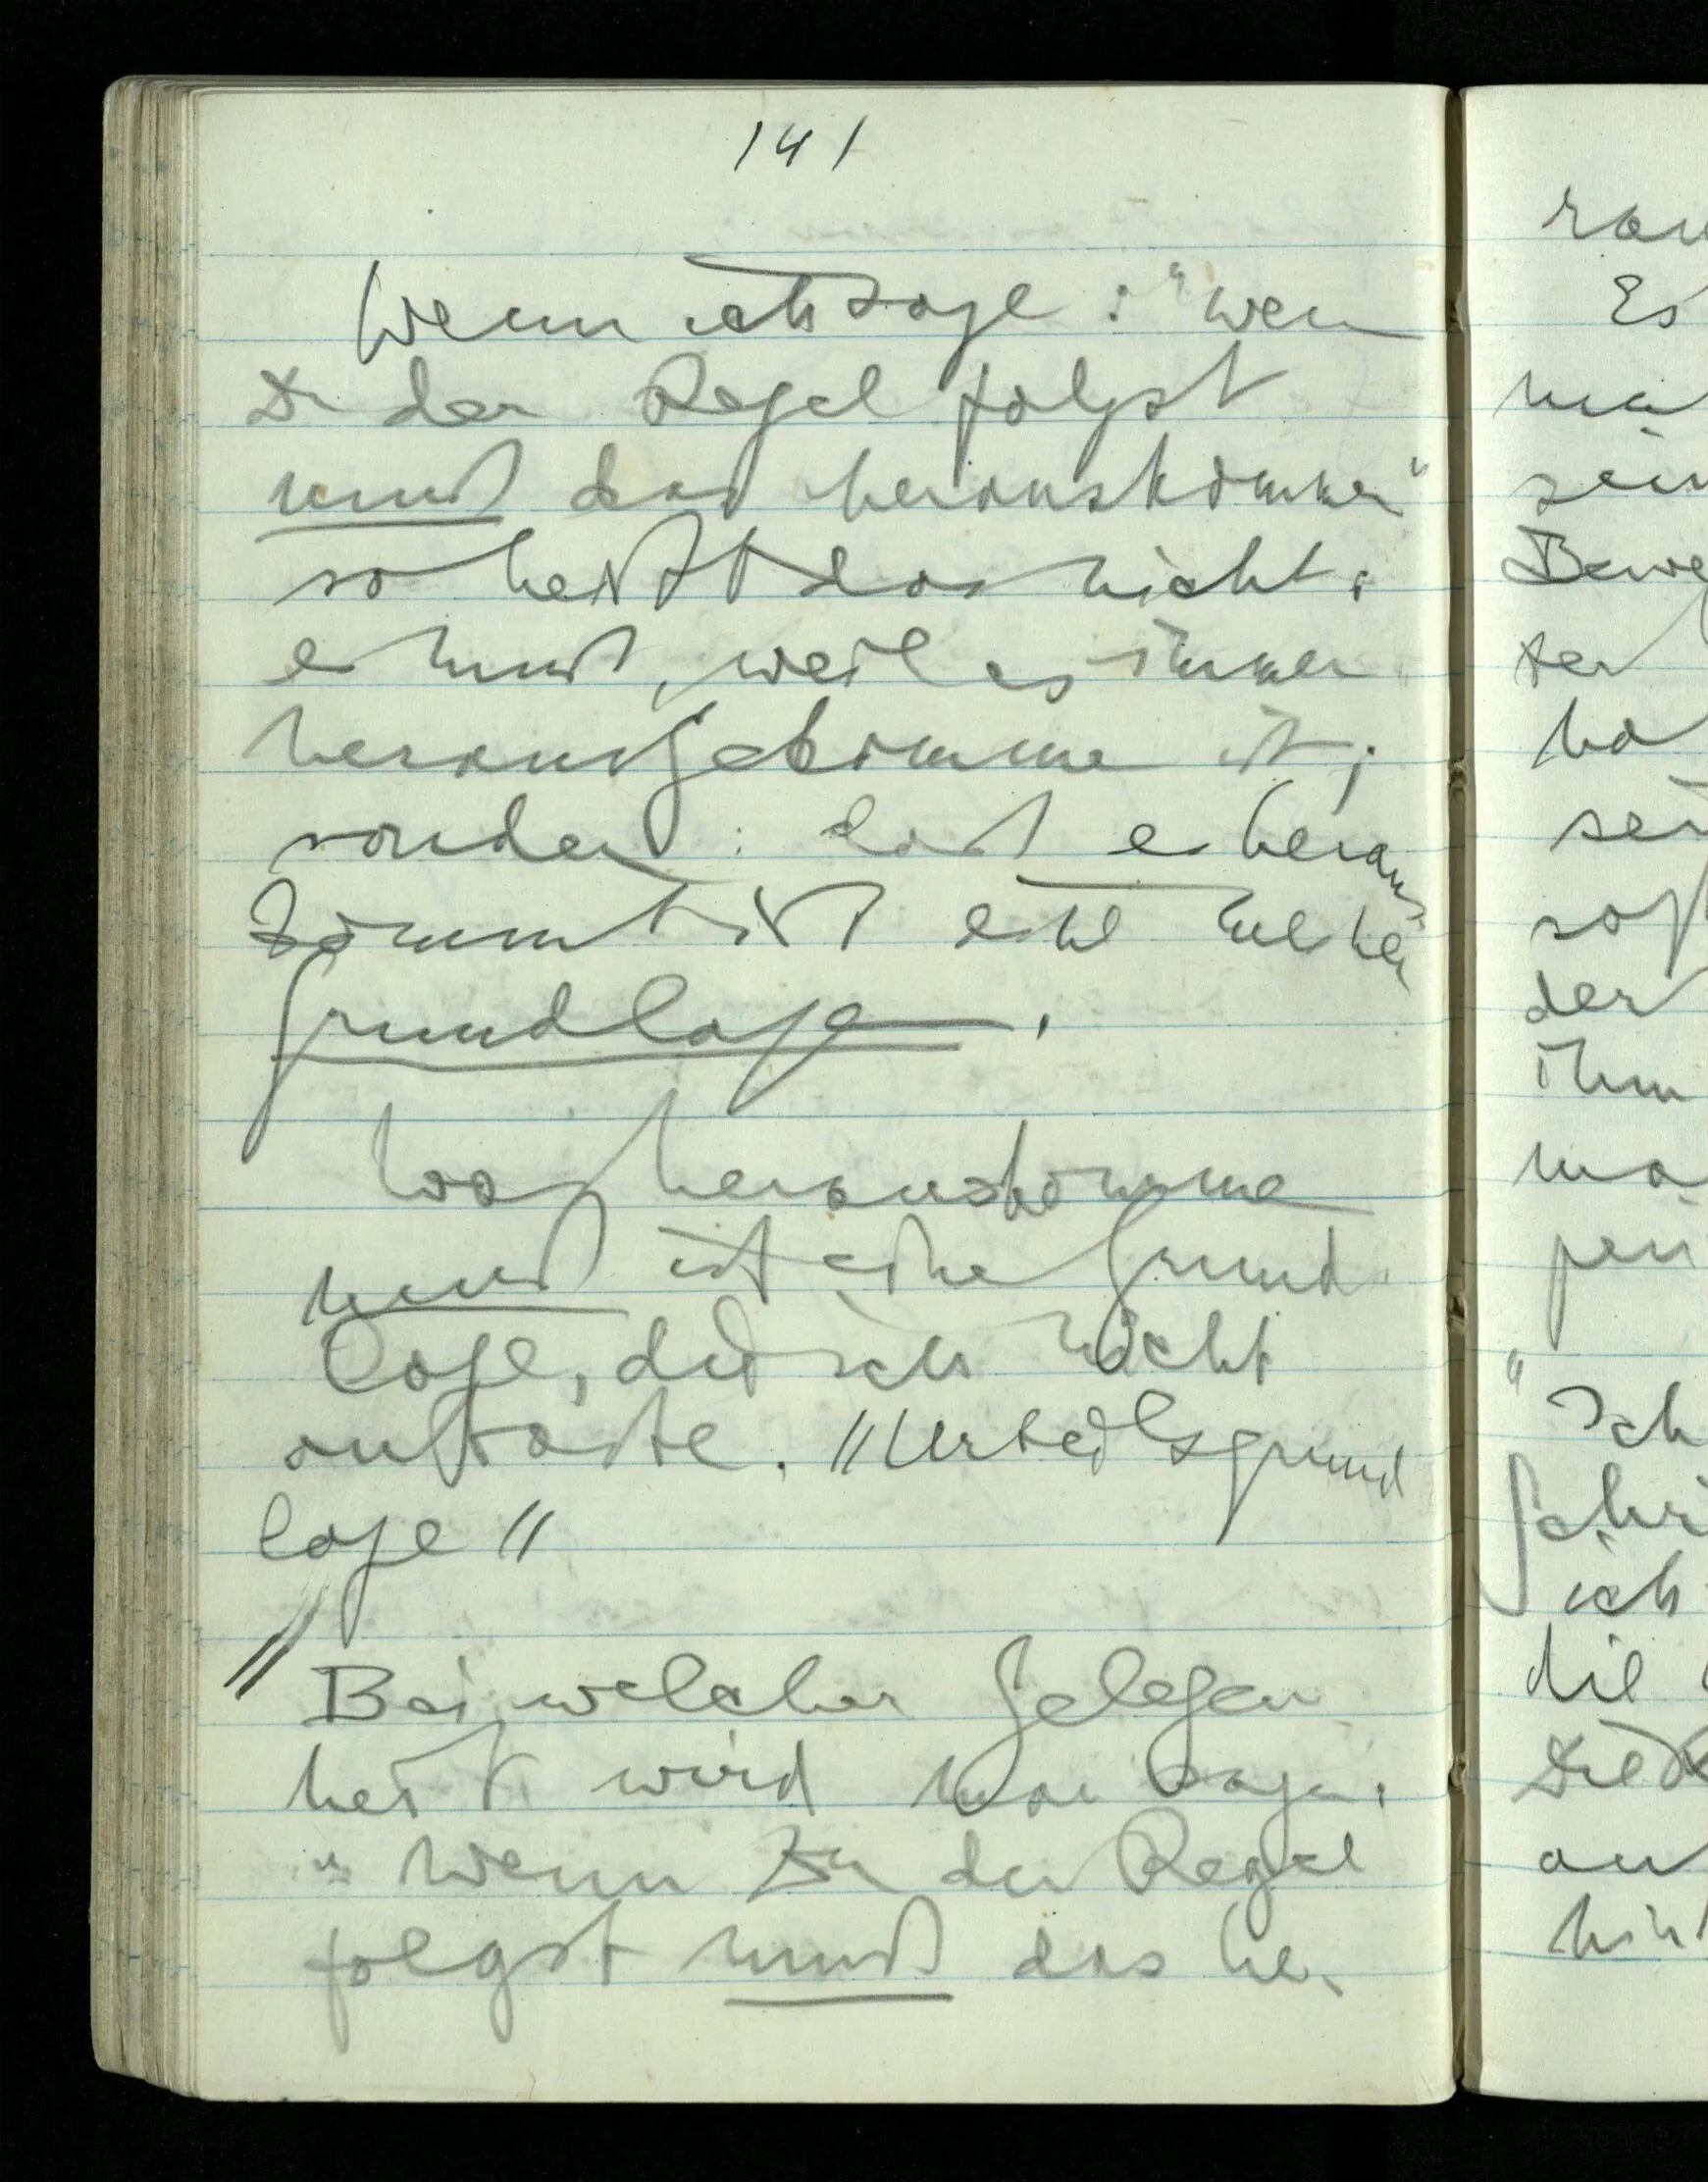 141
Wenn ich sage: "wenn
Du der Regel folgst
muß das herauskommen"
so heißt das nicht:
es muß, weil es immer
herausgekommen ist;
sondern: daß es heraus-
kommt ist eine meiner
Grundlagen.
Was herauskommen
muß ist eine Grund-
lage, die ich nicht
antaste. //Urteilsgrund
lage//
//
Bei welcher Gelegen
heit wird man sagen:
"Wenn Du der Regel
folgst muß das he-
rau
Es
ma
sein
Bewe
ter
ha
sei
der
ihm
ma
"Ich
Schri
ich
die